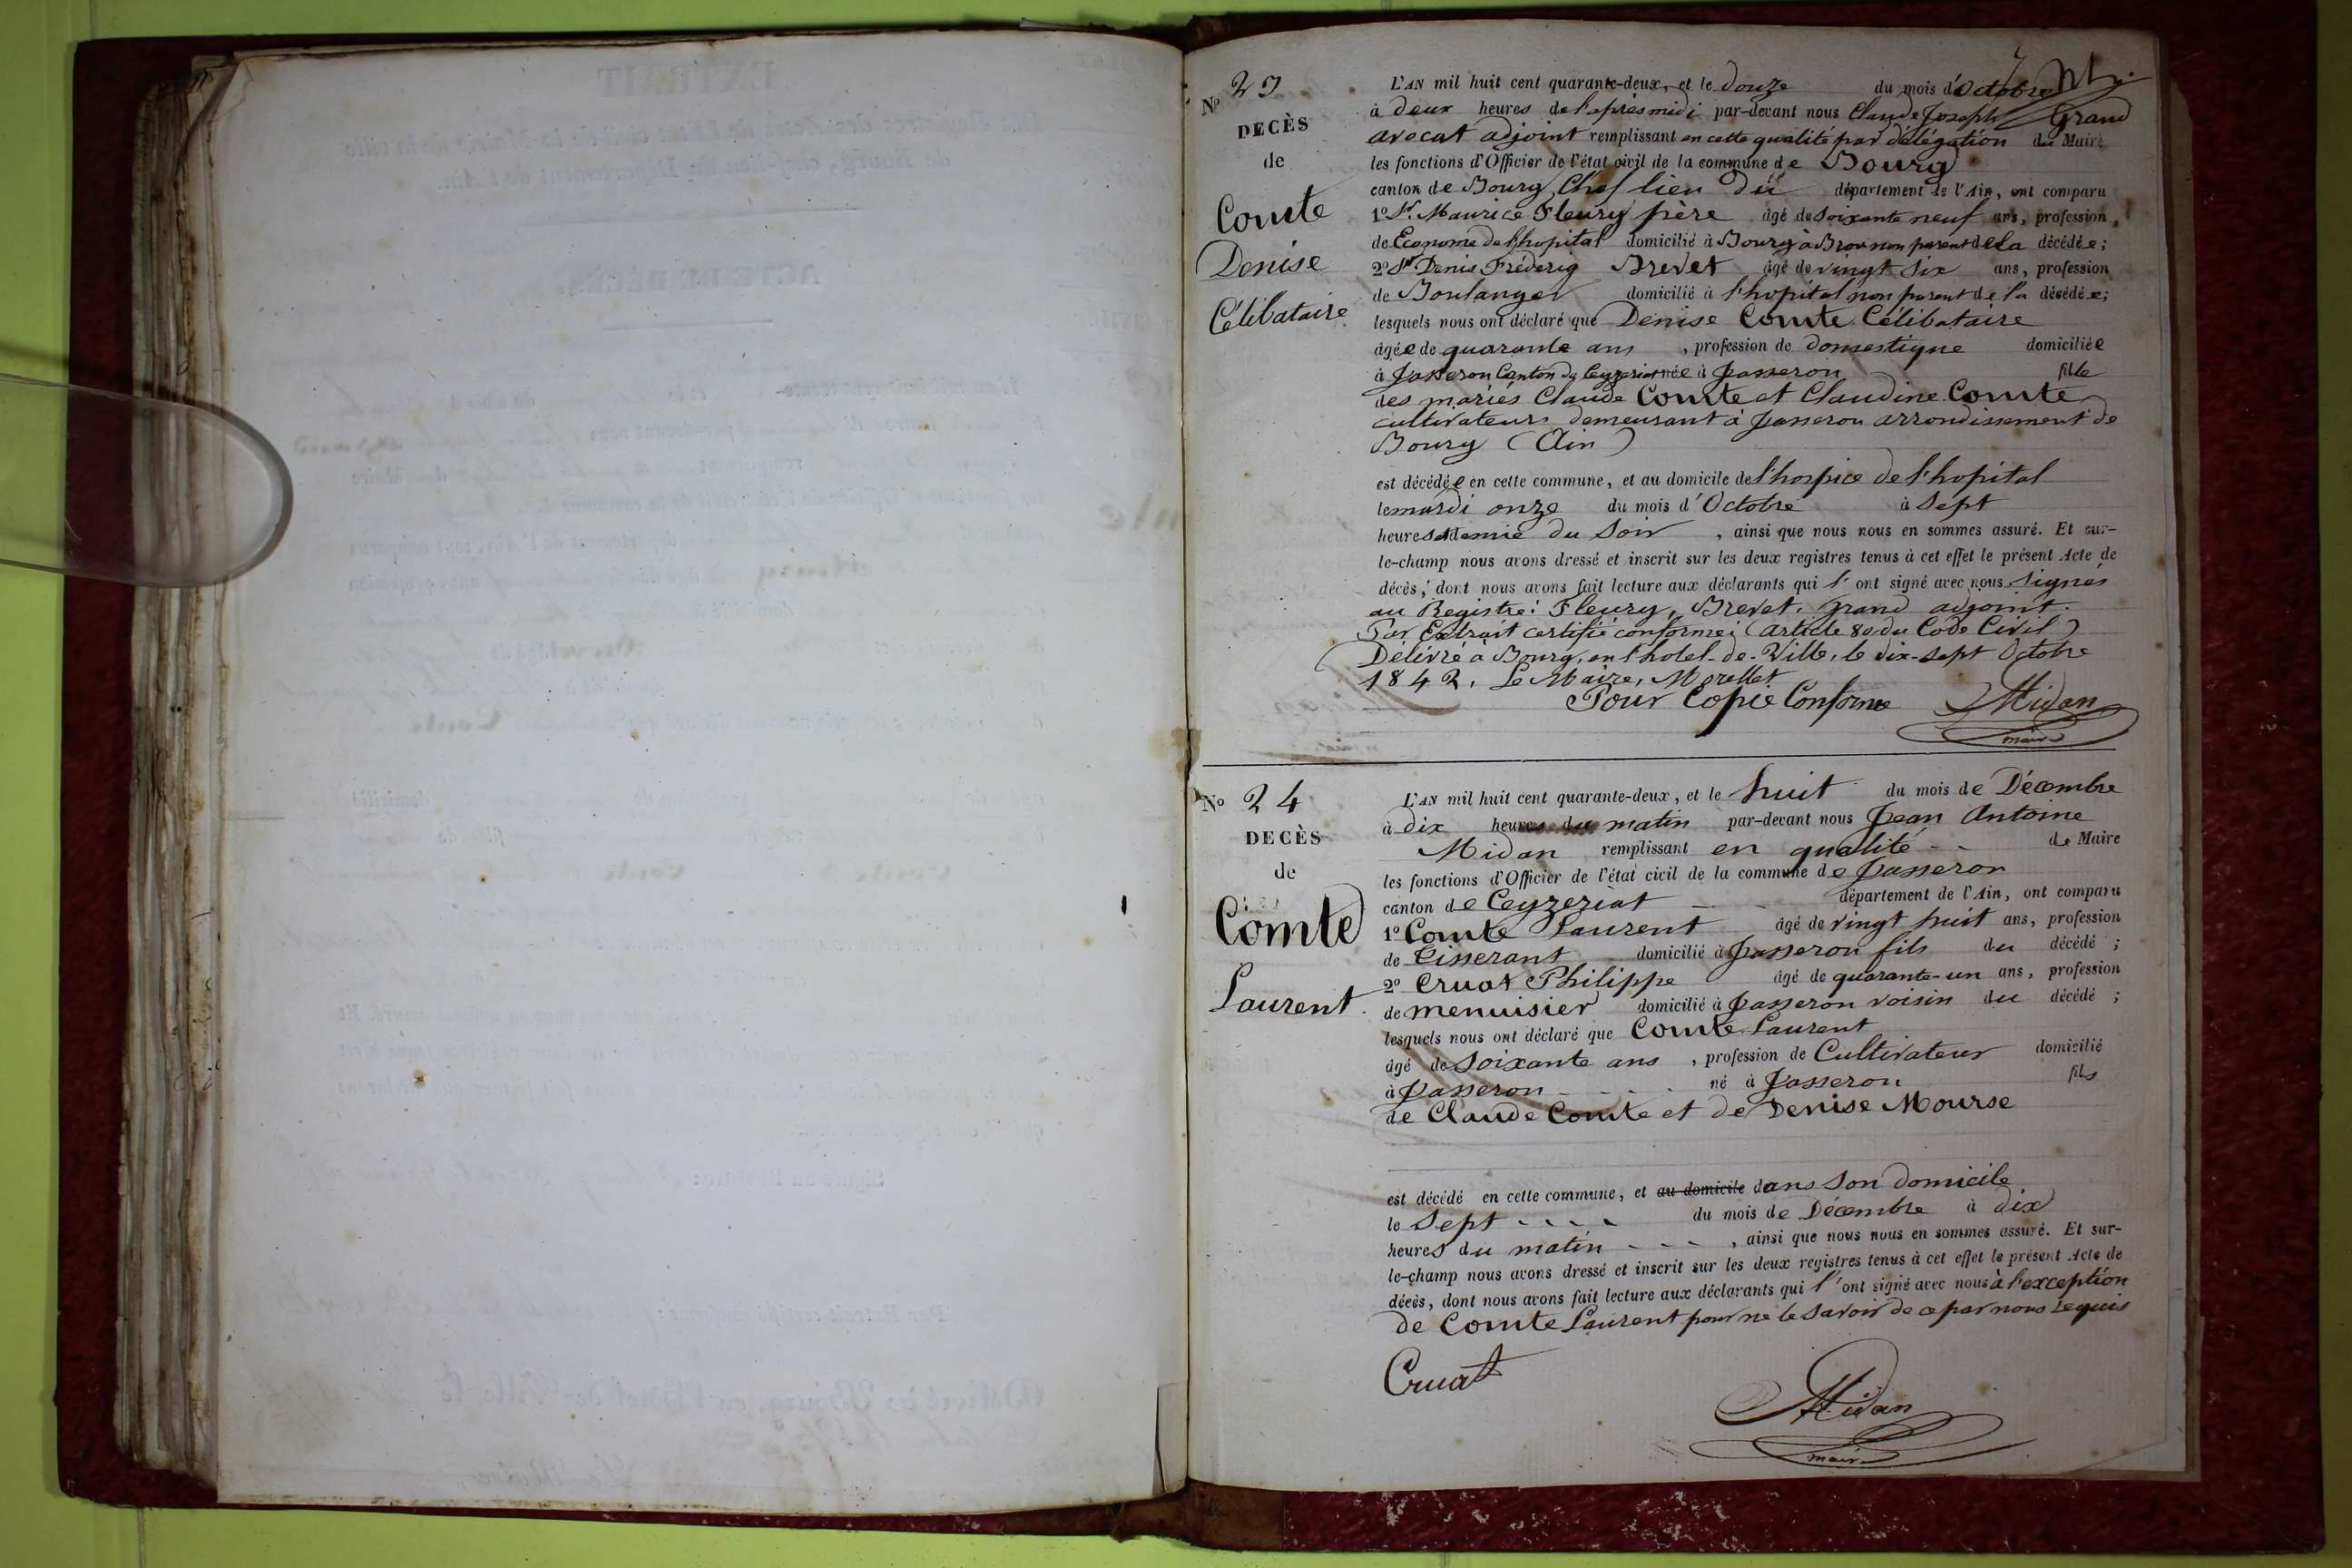 No 23
DECÈS
de
Comte
Denise
Célibataire
L'AN mil huit cent quarante-deux, et le douze du mois d'Octobre
à deux heures de l'après midi par-devant nous Claude Joseph Grand
avocat adjoint remplissant en cette qualité par délégation du Maire
les fonctions d'Officier de l'état civil de la commune de Bourg
canton de Bourg Chef lieu du département de l'Ain, ont comparu
1º Sr. Maurice Fleury père âgé de soixante neuf ans, profession
de Econome de l'hopital domicilié à Bourg à Brou non parent de la décédée;
2º Sr Denis Fréderig Brevet âgé de vingt six ans, profession
de Boulanger domicilié à l'hopital non parent de la décédée;
lesquels nous ont déclaré que Denise Comte Célibataire
âgée de quarante ans, profession de domestique domiciliée
à Jasseron Canton de Ceyzeriat née à Jasseron fille
des mariés Claude Comte et Claudine Comte
cultivateurs demeurant à Jasseron arrondissement de
Bourg (Ain)
est décédée en cette commune, et au domicile de l'hospice de l'hopital
le mardi onze du mois d'Octobre à Sept
heures et demie du Soir, ainsi que nous nous en sommes assuré. Et sur-
le-champ nous avons dressé et inscrit sur les deux registres tenus à cet effet le présent Acte de
décès, dont nous avons fait lecture aux déclarants qui l'ont signé avec nous Signés
au Registre: Fleury, Brevet, Grand adjoint.
Par Extrait certifié conforme: (article 80 du Code Civil)
Délivré à Bourg, en l'hotel-de-Ville, le dix-sept Octobre
1842. Le Maire, Morellet
Pour Copie Conforme Midan
maire
No 24
DECÈS
de
Comte
Laurent
L'AN mil huit cent quarante-deux, et le huit du mois de Décembre
à dix heures du matin par-devant nous Jean Antoine
Midan remplissant en qualité de Maire
les fonctions d'Officier de l'état civil de la commune de Jasseron
canton de Ceyzeriat département de l'Ain, ont comparu
1º Comte Laurent âgé de vingt huit ans, profession
de Tisserant domicilié à Jasseron fils du décédé;
2º Cruat Philippe âgé de quarante-un ans, profession
de menuisier domicilié à Jasseron voisin du décédé;
lesquels nous ont déclaré que Comte Laurent
âgé de soixante ans, profession de Cultivateur domicilié
à Jasseron né à Jasseron fils
de Claude Comte et de Denise Mourse
est décédé en cette commune, et au domicile dans son domicile
le Sept du mois de Décembre à dix
heures du matin, ainsi que nous nous en sommes assuré. Et sur-
le-champ nous avons dressé et inscrit sur les deux registres tenus à cet effet le présent Acte de
décès, dont nous avons fait lecture aux déclarants qui l'ont signé avec nous à l'exception
de Comte Laurent pour ne le savoir de ce par nous requis
Cruat
Midan
maire